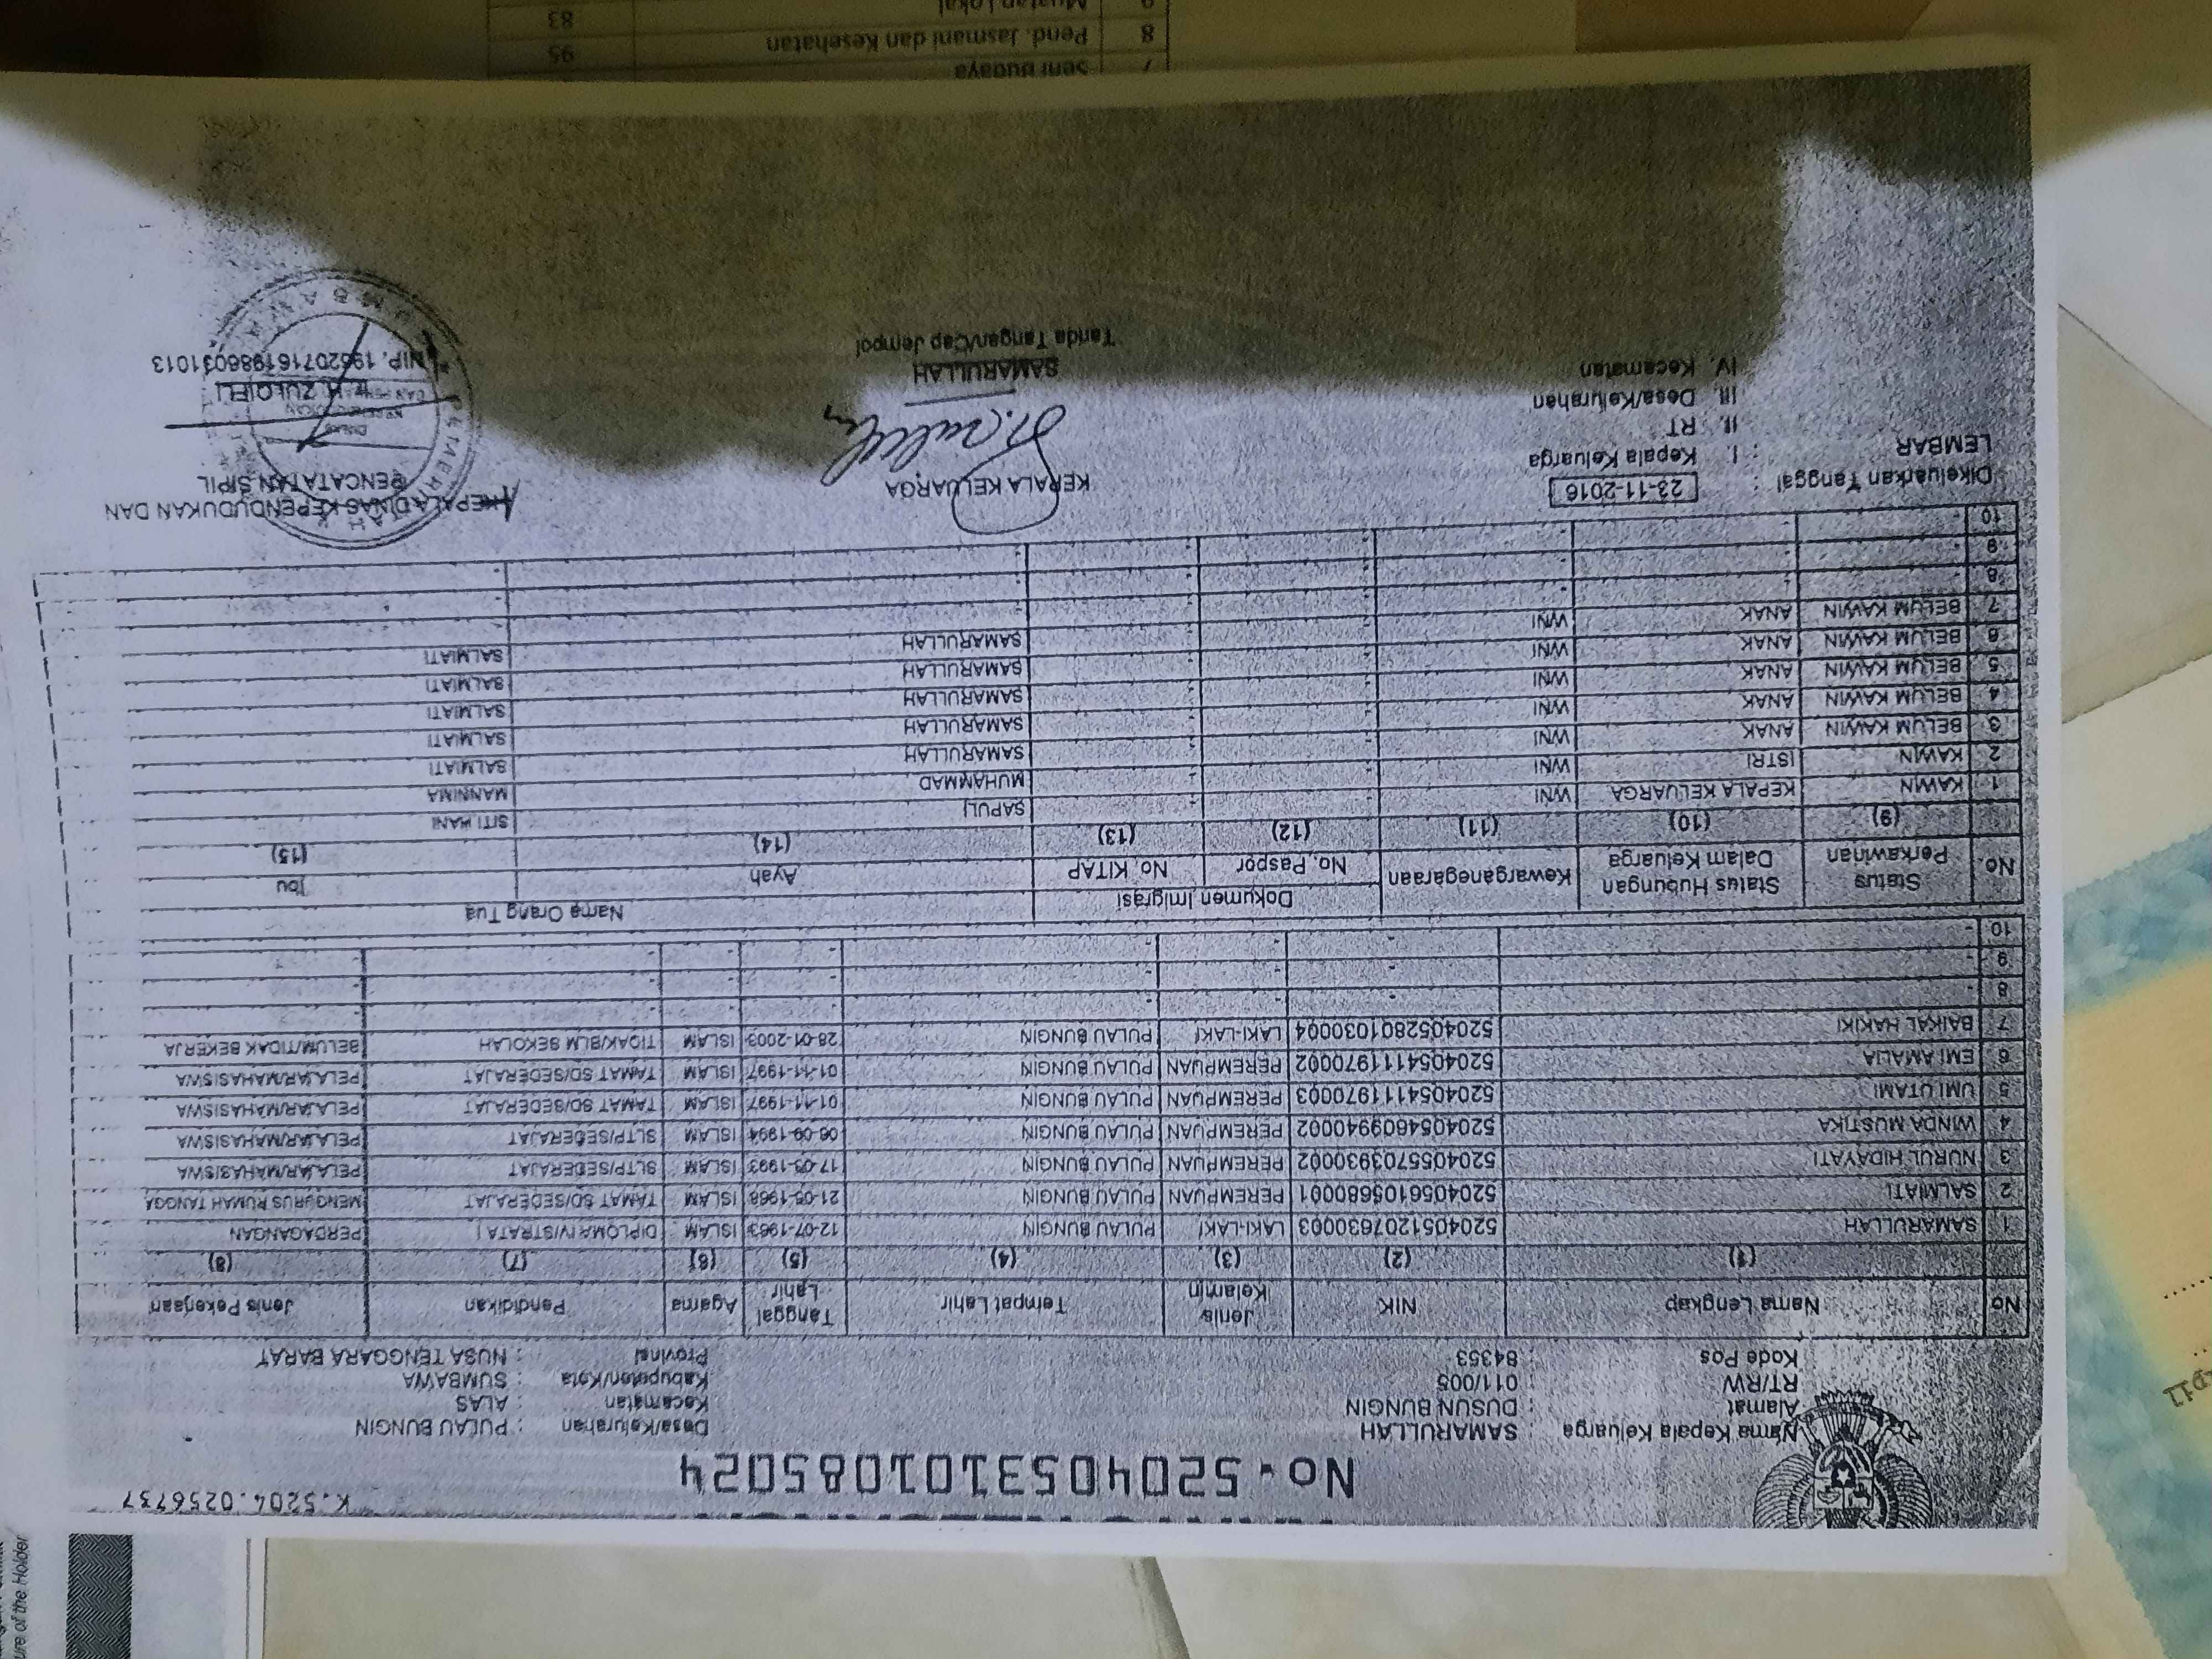 K.5204.0256737
No. 5204053101085024
Nama Kepala Keluarga : SAMARULLAH
Alamat : DUSUN BUNGIN
RT/RW : 011/005
Kode Pos : 84353
Desa/Kelurahan : PULAU BUNGIN
Kecamatan : ALAS
Kabupaten/Kota : SUMBAWA
Provinsi : NUSA TENGGARA BARAT
No Nama Lengkap NIK Jenis Kelamin Tempat Lahir Tanggal Lahir Agama Pendidikan Jenis Pekerjaan
(1) (2) (3) (4) (5) (6) (7) (8)
1 SAMARULLAH 5204051207630003 LAKI-LAKI PULAU BUNGIN 12-07-1963 ISLAM DIPLOMA IV/STRATA I PERDAGANGAN
2 SALMIATI 5204056105680001 PEREMPUAN PULAU BUNGIN 21-05-1968 ISLAM TAMAT SD/SEDERAJAT MENGURUS RUMAH TANGGA
3 NURUL HIDAYATI 5204055703930002 PEREMPUAN PULAU BUNGIN 17-03-1993 ISLAM SLTP/SEDERAJAT PELAJAR/MAHASISWA
4 WINDA MUSTIKA 5204054609940002 PEREMPUAN PULAU BUNGIN 06-09-1994 ISLAM SLTP/SEDERAJAT PELAJAR/MAHASISWA
5 UMI UTAMI 5204054111970003 PEREMPUAN PULAU BUNGIN 01-11-1997 ISLAM TAMAT SD/SEDERAJAT PELAJAR/MAHASISWA
6 EMI AMALIA 5204054111970002 PEREMPUAN PULAU BUNGIN 01-11-1997 ISLAM TAMAT SD/SEDERAJAT PELAJAR/MAHASISWA
7 BAIKAL HAKIKI 5204052801030004 LAKI-LAKI PULAU BUNGIN 28-01-2003 ISLAM TIDAK/BLM SEKOLAH BELUM/TIDAK BEKERJA
8 - - - - - - - -
9 - - - - - - - -
10 - - - - - - - -
No. Status Perkawinan Status Hubungan Dalam Keluarga Kewarganegaraan Dokumen Imigrasi Nama Orang Tua
No. Paspor No. KITAP Ayah Ibu
(9) (10) (11) (12) (13) (14) (15)
1 KAWIN KEPALA KELUARGA WNI - - SAPULI SITI HANI
2 KAWIN ISTRI WNI - - MUHAMMAD MANNIMA
3 BELUM KAWIN ANAK WNI - - SAMARULLAH SALMIATI
4 BELUM KAWIN ANAK WNI - - SAMARULLAH SALMIATI
5 BELUM KAWIN ANAK WNI - - SAMARULLAH SALMIATI
6 BELUM KAWIN ANAK WNI - - SAMARULLAH SALMIATI
7 BELUM KAWIN ANAK WNI - - SAMARULLAH SALMIATI
8 - - - - - - -
9 - - - - - - -
10 - - - - - - -
Dikeluarkan Tanggal : 23-11-2016
LEMBAR : I. Kepala Keluarga
II. RT
III. Desa/Kelurahan
IV. Kecamatan
KEPALA KELUARGA
SAMARULLAH
Tanda Tangan/Cap Jempol
KEPALA DINAS KEPENDUDUKAN DAN
PENCATATAN SIPIL
NIP. 196207161986031013
7 Seni Budaya
8 Pend. Jasmani dan Kesehatan 95
9 Muatan Lokal 83
ure of the Holder